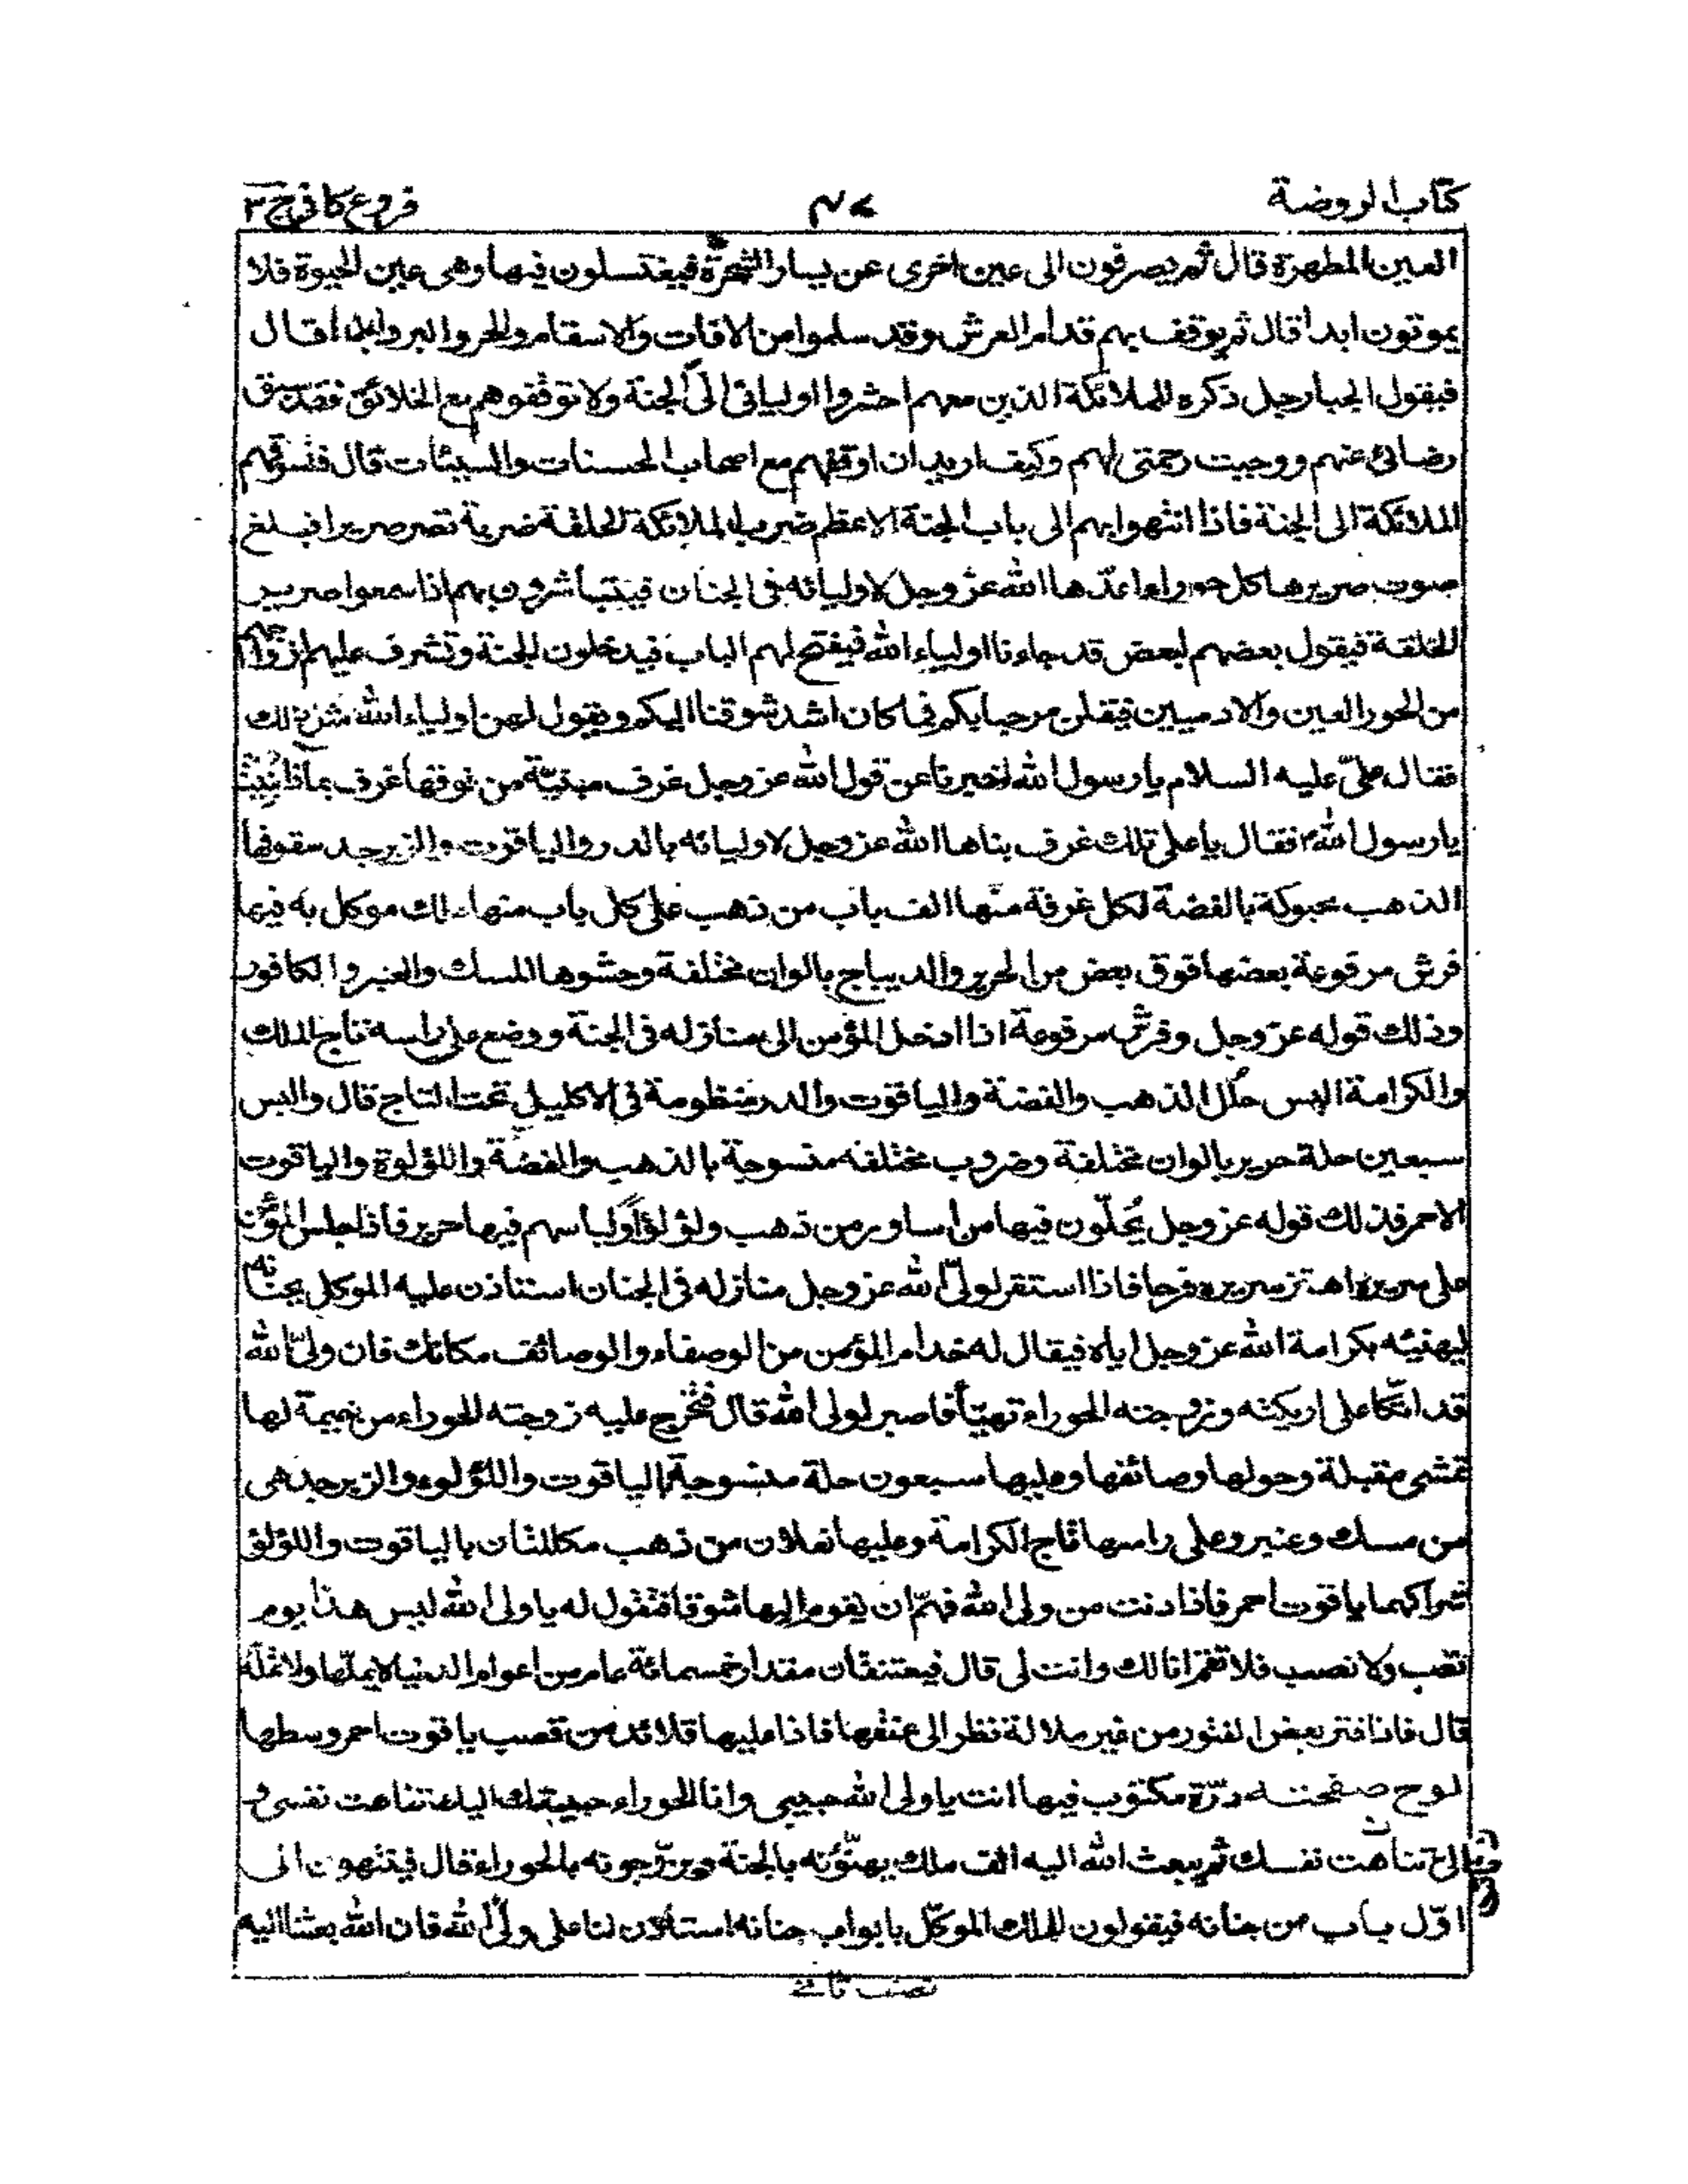 كتاب الروضة ٤٧ فروع كافي ج ٣
العين المطهرة قال ثم يصرفون الى عين اخرى عن يسار الشجرة فيغتسلون فيها وهى عين الحيوة فلا
يموتون ابدا قال ثم يوقف بهم قدام العرش وقد سلموا من الافات والاسقام والحر والبرد ابدا قال
فيقول الجبار جل ذكره للملائكة الذين معهم احشروا اوليائى الى الجنة ولا توقفوهم مع الخلائق فقد سبق
رضائى عنهم ووجبت رحمتى لهم وكيف اريد ان اوقفهم مع اصحاب الحسنات والسيئات قال فتسوقهم
الملائكة الى الجنة فاذا انتهوا بهم الى باب الجنة الاعظم ضرب الملائكة الحلقة ضربة تصر صريرا فيبلغ
صوت صريرها كل حوراء اعدّها الله عز وجل لاوليائه فى الجنان فيتباشرون بهم اذا سمعوا صرير
الحلقة فيقول بعضهم لبعض قد جاءنا اولياء الله فيفتح لهم الباب فيدخلون الجنة وتشرف عليهم ازواجهم
من الحور العين والادميين فيقلن مرحبا بكم فما كان اشد شوقنا اليكم ويقول لهن اولياء الله مثل ذلك
فقال علىّ عليه السلام يا رسول الله اخبرنا عن قول الله عز وجل غرف مبنيّة من فوقها غرف بماذا بنيت
يا رسول الله فقال يا على تلك غرف بناها الله عز وجل لاوليائه بالدر والياقوت والزبرجد سقوفها
الذهب محبوكة بالفضة لكل غرفة منها الف باب من ذهب على كل باب منها ملك موكل به فيها
فرش مرفوعة بعضها فوق بعض من الحرير والديباج بالوان مختلفة وحشوها المسك والعنبر والكافور
وذلك قوله عز وجل وفرش مرفوعة اذا ادخل المؤمن الى منازله فى الجنة ووضع على راسه تاج الملك
والكرامة البس حلل الذهب والفضة والياقوت والدر منظومة فى الاكليل تحت التاج قال والبس
سبعين حلة حرير بالوان مختلفة وضروب مختلفه منسوجة بالذهب والفضة واللؤلوة والياقوت
الاحمر فذلك قوله عز وجل يُحلّون فيها من اساور من ذهب ولؤلؤاً ولباسهم فيها حرير فاذا جلس المؤمن
على سريره اهتز سريره فرحا فاذا استقر لولىّ الله عز وجل منازله فى الجنان استاذن عليه الموكل بجنانه
ليهنيئه بكرامة الله عز وجل اياه فيقال له خدام المؤمن من الوصفاء والوصائف مكانك فان ولىّ الله
قد اتّكا على اريكته وزوجته الحوراء تهيّأ فاصبر لولى الله قال فتخرج عليه زوجته الحوراء من خيمة لها
تمشى مقبلة وحولها وصائفها وعليها سبعون حلة منسوجة بالياقوت واللؤلوء والزبرجد هى
من مسك وعنبر وعلى راسها تاج الكرامة وعليها نعلان من ذهب مكللتان بالياقوت واللؤلؤ
شراكهما ياقوت احمر فاذا دنت من ولى الله فهمّ ان يقوم اليها شوقا فتقول له يا ولى الله ليس هذا يوم
تعب ولا نصب فلا تقم انا لك وانت لى قال فيعتنقان مقدار خمسمائة عام من اعوام الدنيا لا يملّها ولا تملّه
قال فاذا فتر بعض الفتور من غير ملالة نظر الى عنقها فاذا عليها قلائد من قصب ياقوت احمر وسطها
لوح صفحته درّة مكتوب فيها انت يا ولى الله حبيبى وانا الحوراء حبيبتك اليك تناهت نفسى و
الىّ تناهت نفسك ثم يبعث الله اليه الف ملك يهنّؤنه بالجنة ويزوّجونه بالحوراء قال فينتهون الى
اوّل باب من جنانه فيقولون للملك الموكّل بابواب جنانه استأذن لنا على ولىّ الله فان الله بعثنا اليه
نصف ثانى